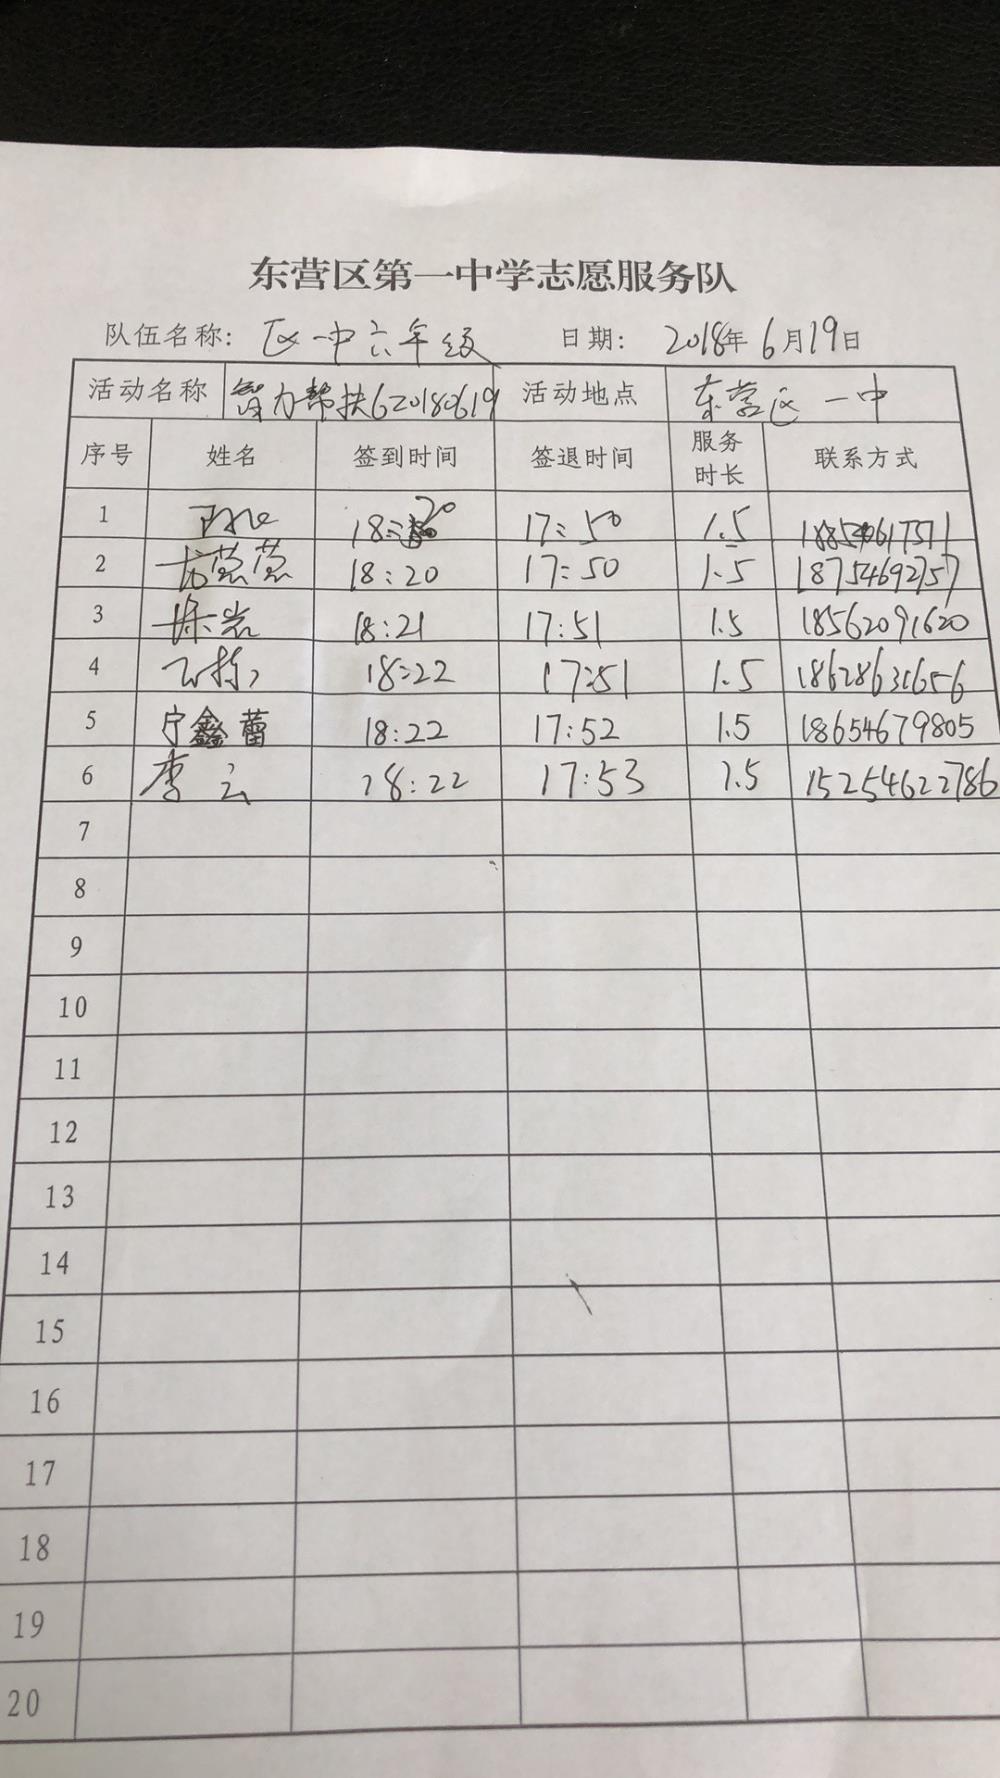 东营区第一中学志愿服务队
队伍名称: 区一中六年级 日期: 2018年6月19日
活动名称 智力帮扶620180619 活动地点 东营区一中
序号 姓名 签到时间 签退时间 服务时长 联系方式
1 18:20 17:50 1.5
2 18:20 17:50 1.5 18754692757
3 徐岩 18:21 17:51 1.5 18562091620
4 18:22 17:51 1.5
5 宁鑫蕾 18:22 17:52 1.5 18654679805
6 李云 18:22 17:53 1.5 15254622786
7
8
9
10
11
12
13
14
15
16
17
18
19
20